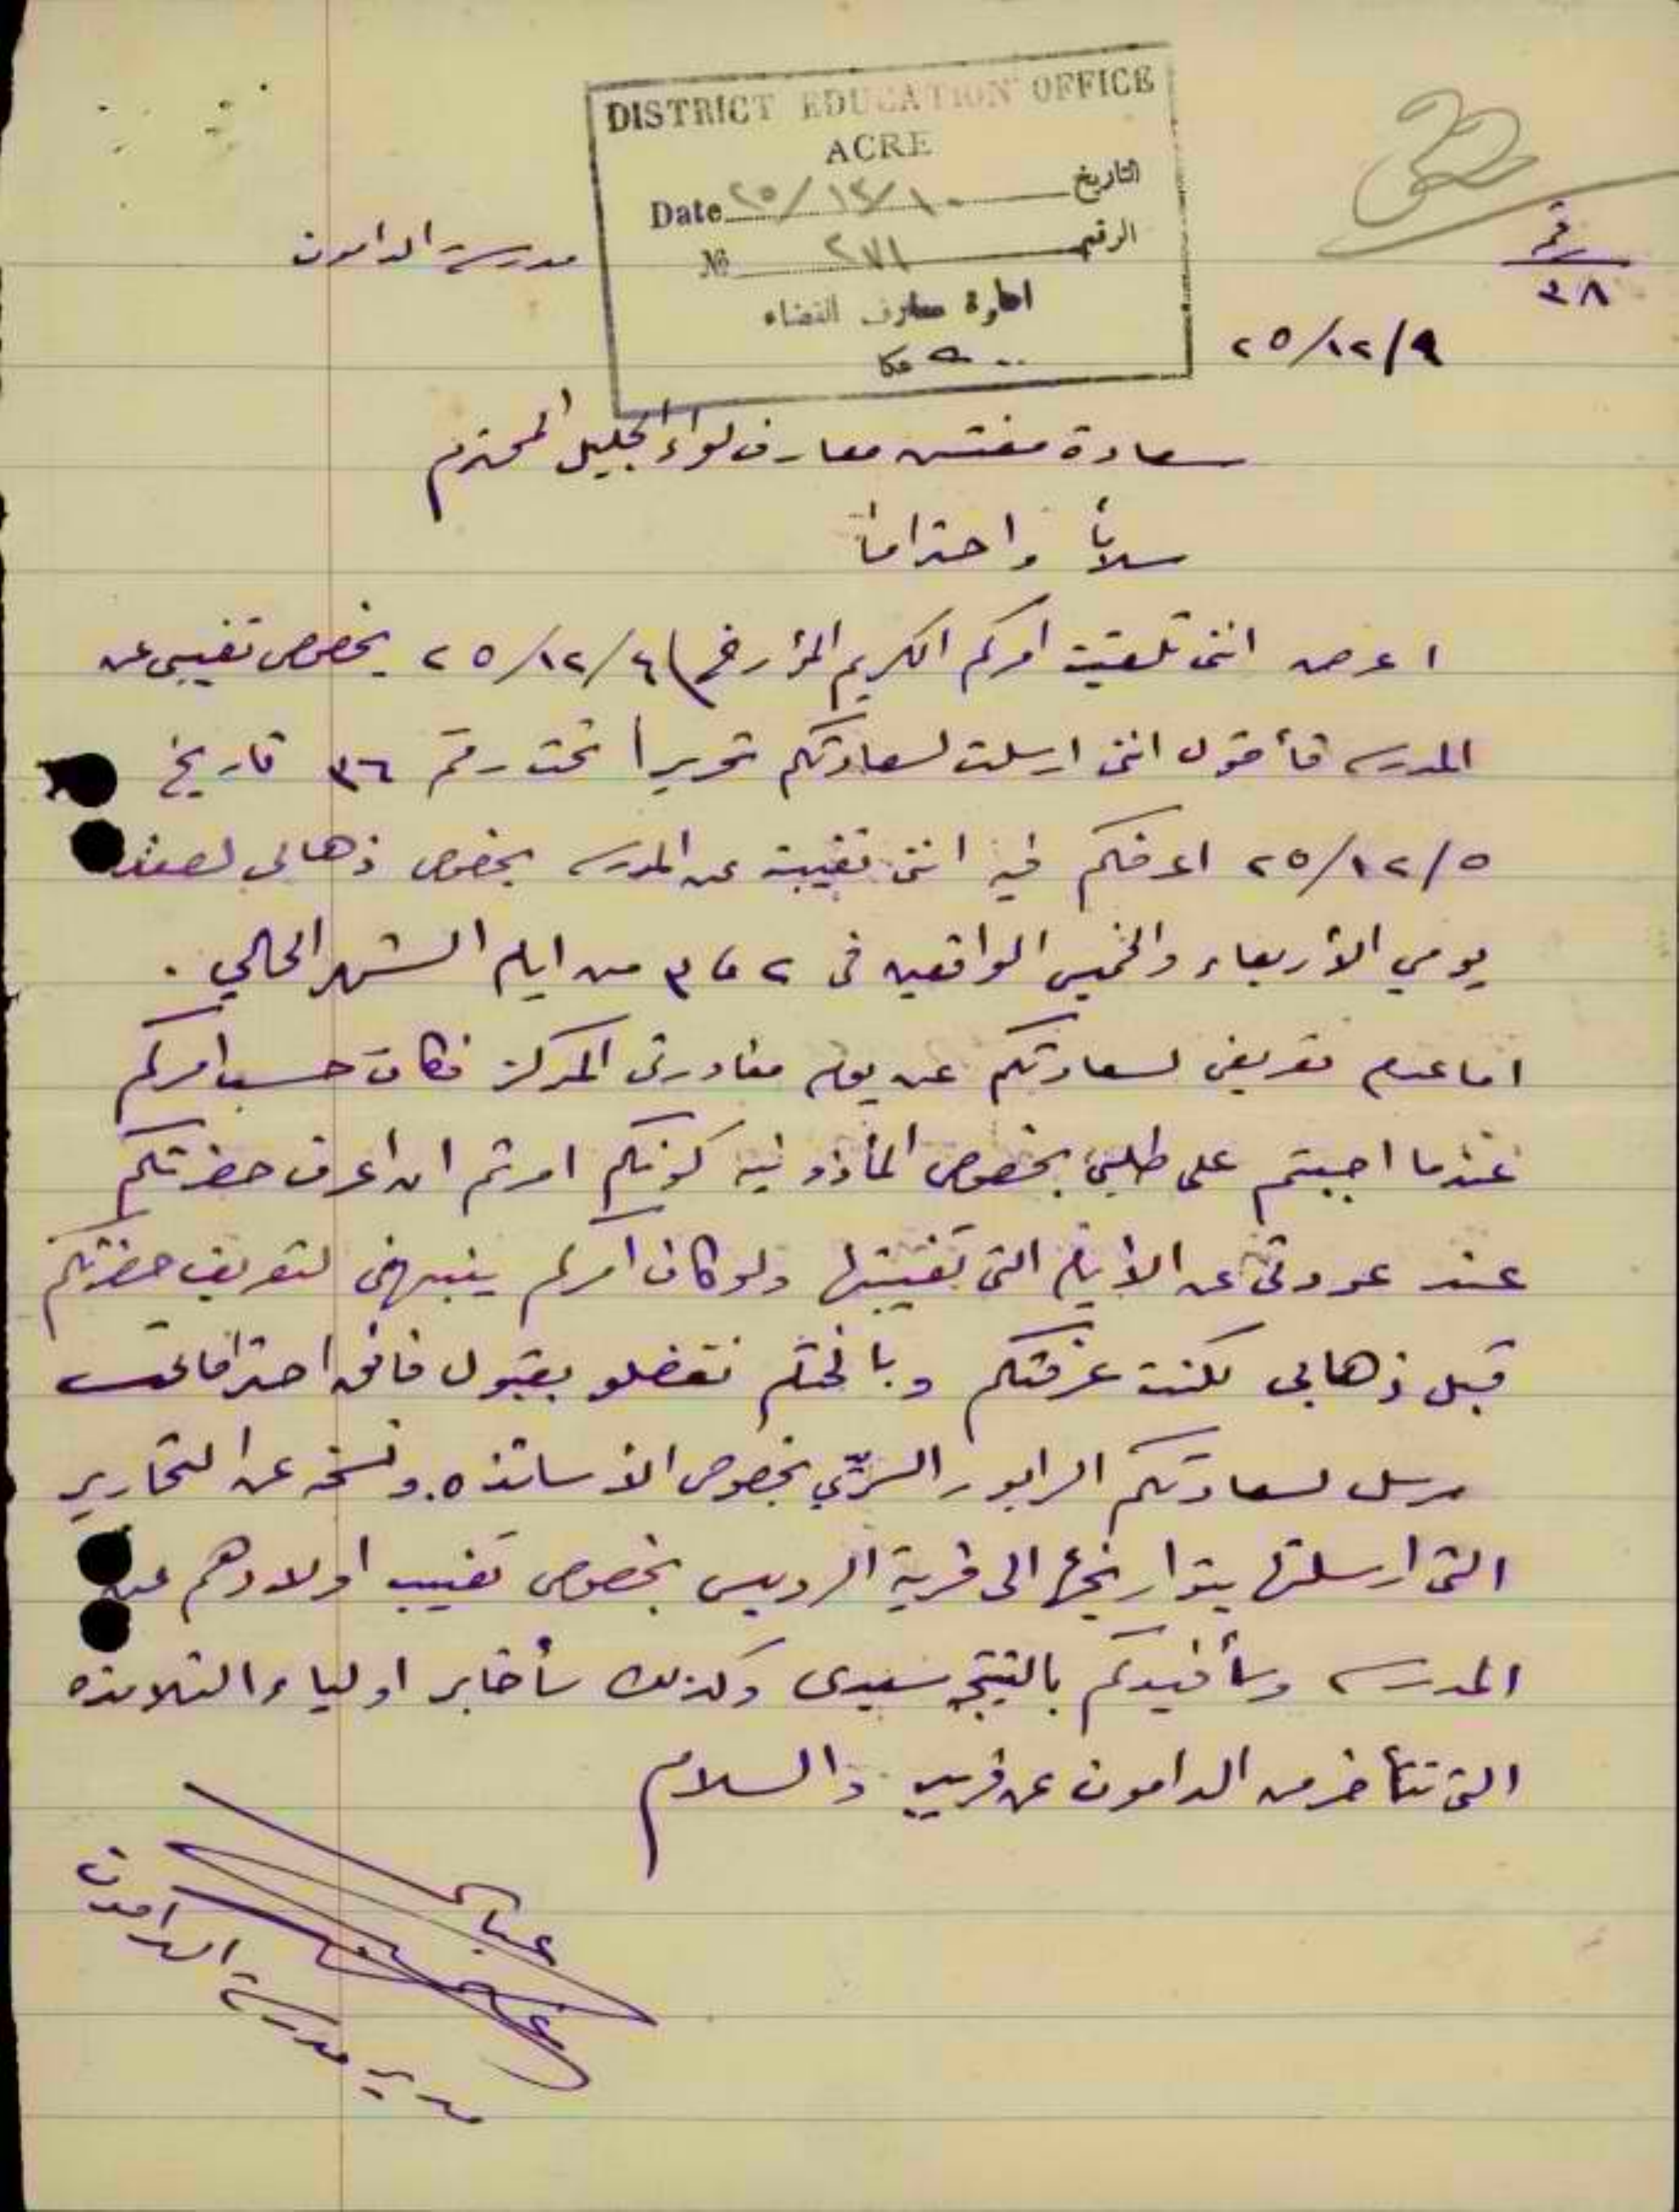 DISTRICT EDUCATION OFFICE
ACRE
Date ٢٥/١٢/١٠ التاريخ
№ ٢٧١ الرقم
ادارة معارف القضاء
عكا
رقم
٣٨
مدرسة الدامون
٢٥/١٢/٩
سعادة مفتش معارف لواء الجليل المحترم
سلاماً واحتراماً
اعرض انني تلقيت امركم الكريم المؤرخ في ٢٥/١٢/٤ بخصوص تغيبي عن
المدرسه فأقول انني ارسلت لسعادتكم تحريراً تحت رقم ٣٦ تاريخ
٢٥/١٢/٥ اعرفكم فيه انني تغيبت عن المدرسه بخصوص ذهابي لصفد
يومي الأربعاء والخميس الواقعين في ٢ و ٣ من ايام الشهر الحالي .
اما عدم تعريفي لسعادتكم عن يوم مغادرتي المركز فكان حسب امركم
عندما اجبتم على طلبي بخصوص المأذونيه كونكم امرتم ان اعرف حضرتكم
عند عودتي عن الأيام التي تغيبتها ولو كان امركم ينبهني لتعريف حضرتكم
قبل ذهابي لكنت عرفتكم وبالختام تفضلو بقبول فائق احتراماتي
مرسل لسعادتكم الرابور السرّي بخصوص الاساتذه. ونسخه عن التحارير
التي ارسلتها بتواريخها الى قرية الرويس بخصوص تغييب اولادهم عن
المدرسه وسأفيدكم بالنتيجه سيدي وكذلك سأخابر اولياء التلامذه
التي تتأخر من الدامون عن قريب والسلام
عباس
مدير مدرسة الدامون